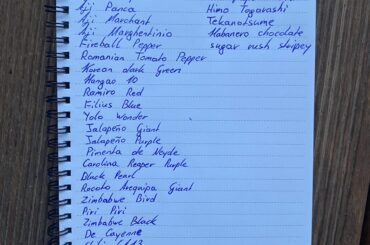 Aji Panca
Aji Marchant
Aji Marghentinio
Fireball Pepper
Romanian Tomato Pepper
Korean dark Green
Hangao 10
Ramiro Red
Filius Blue
Yolo Wonder
Jalapeño Giant
Jalapeño Purple
Pimenta de Neyde
Carolina Reaper Purple
Black Pearl
Rocoto Arequipa Giant
Zimbabwe Bird
Piri Piri
Zimbabwe Black
De Cayenne
Himo Togarashi
Tekanotsume
Habanero chocolate
sugar rush stripey